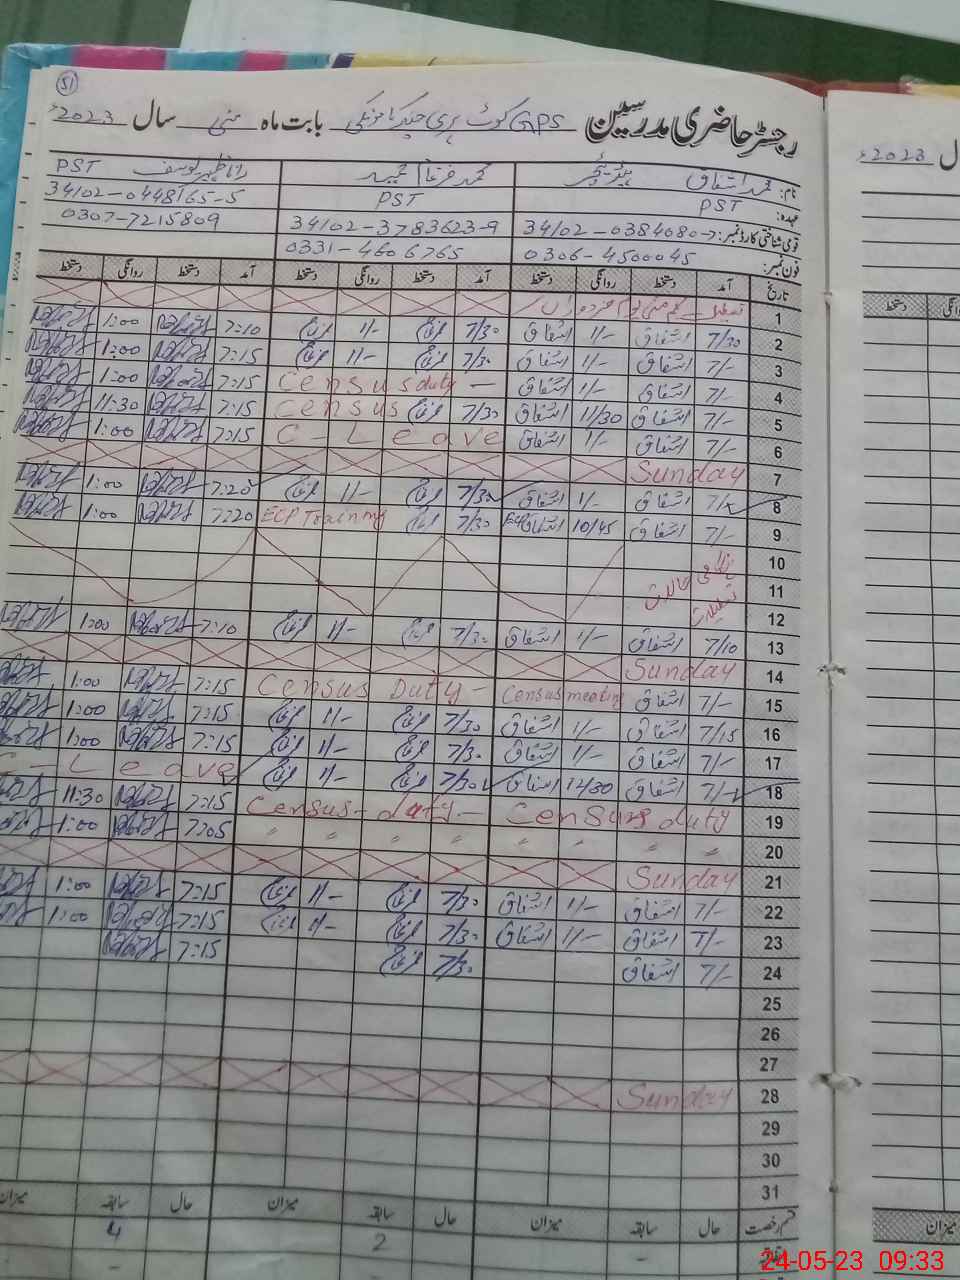 51
رجسٹر حاضری مدرسین GPS کوٹ ہری چیکر بابت ماہ مئی سال 2023ء
نام: محمد اشفاق ہیڈ ٹیچر محمد فرقان رانا ظہیر یوسف PST
عہدہ: PST PST 34102-0448165-5
قومی شناختی کارڈ نمبر: 34102-0384080-7 34102-3783623-9 0307-7215809
فون نمبر: 0306-4500045 0331-4606765
تاریخ آمد دستخط روانگی دستخط آمد دستخط روانگی دستخط آمد دستخط روانگی دستخط
1 تعطیل یکم مئی یوم مزدوراں
2 7/30 اشفاق 1/- اشفاق 7/30 1/- 7:10 1:00
3 7/- اشفاق 1/- اشفاق 7/30 1/- 7:15 1:00
4 7/- اشفاق 1/- اشفاق Census duty - 7:15 1:00
5 7/- اشفاق 11/30 اشفاق 7/30 Census 7:15 11:30
6 7/- اشفاق 1/- اشفاق C-Leave 7:15 1:00
7 Sunday
8 اشفاق 1/- اشفاق 7/30 1/- 7:20 1:00
9 7/- اشفاق 10/45 اشفاق 7/30 ECP Training 7:20 1:00
10
11
12
13 7/10 اشفاق 1/- اشفاق 7/30 1/- 7:10 1:00
14 Sunday
15 7/- اشفاق Census meeting Census Duty - 7:15 1:00
16 7/15 اشفاق 1/- اشفاق 7/30 1/- 7:15 1:00
17 7/- اشفاق 1/- اشفاق 7/30 1/- 7:15 1:00
18 7/- اشفاق 12/30 اشفاق 7/30 1/- C-Leave
19 Census duty Census-duty- 7:15 11:30
20 〃 〃 〃 〃 〃 〃 〃 〃 7:05 1:00
21 Sunday
22 7/- اشفاق 1/- اشفاق 7/30 1/- 7:15 1:00
23 7/- اشفاق 1/- اشفاق 7/30 1/- 7:15 1:00
24 7/- اشفاق 7/30 7:15
25
26
27
28 Sunday
29
30
31
قسم رخصت حال سابقہ میزان حال سابقہ میزان حال سابقہ میزان
- 2 4
-
سال 2023ء
دستخط
میزان
24-05-23 09:33